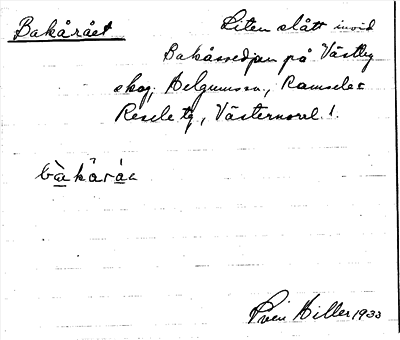 Bakårået
Liten slått invid
Bakåssedjan på Västby
skog, Helgumssn, Ramsele &
Resele tg, Västernorrl.
bàkåráa
Sven Hiller 1933